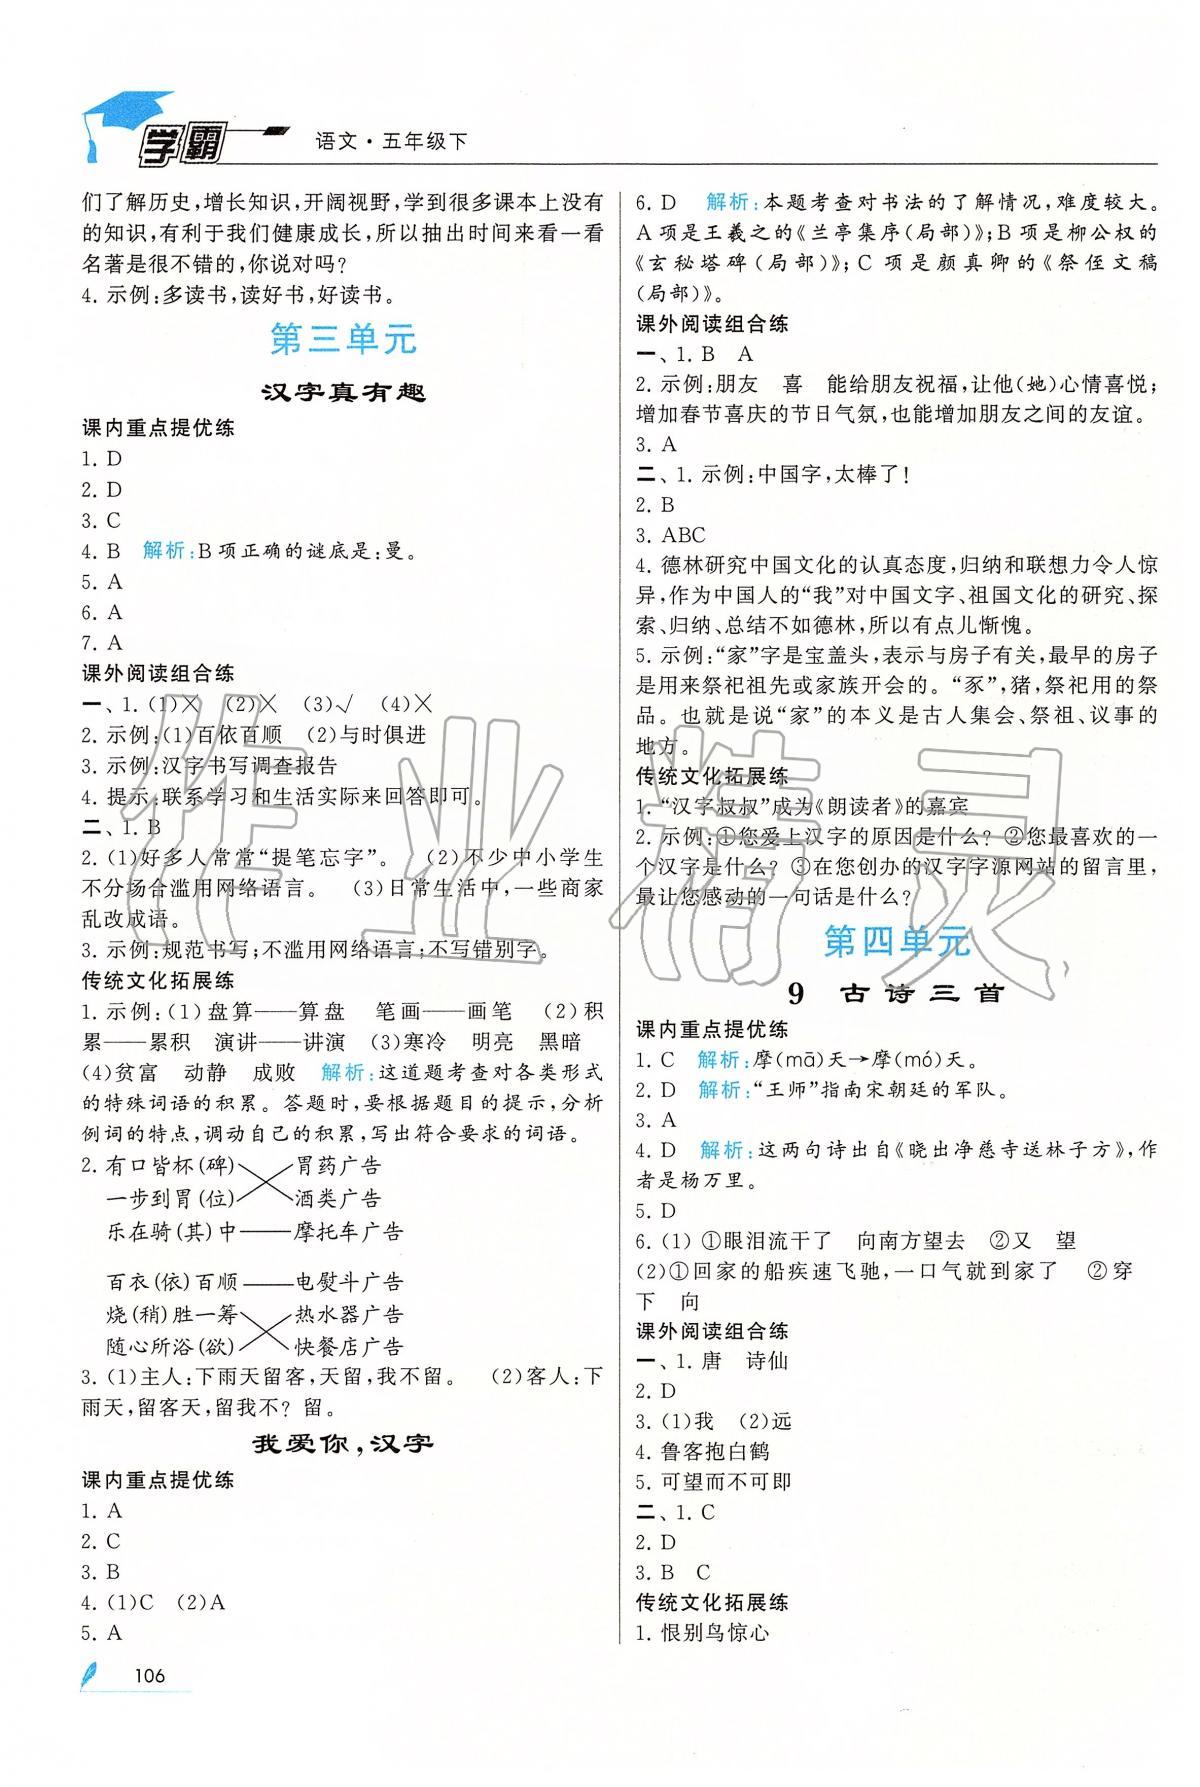 学霸
语文·五年级下
们了解历史,增长知识,开阔视野,学到很多课本上没有
的知识,有利于我们健康成长,所以抽出时间来看一看
名著是很不错的,你说对吗?
4. 示例:多读书,读好书,好读书。
第三单元
汉字真有趣
课内重点提优练
1. D
2. D
3. C
4. B 解析:B项正确的谜底是:曼。
5. A
6. A
7. A
课外阅读组合练
一、1. (1)╳ (2)╳ (3)√ (4)╳
2. 示例:(1)百依百顺 (2)与时俱进
3. 示例:汉字书写调查报告
4. 提示:联系学习和生活实际来回答即可。
二、1. B
2. (1)好多人常常“提笔忘字”。 (2)不少中小学生
不分场合滥用网络语言。 (3)日常生活中,一些商家
乱改成语。
3. 示例:规范书写;不滥用网络语言;不写错别字。
传统文化拓展练
1. 示例:(1)盘算——算盘 笔画——画笔 (2)积
累——累积 演讲——讲演 (3)寒冷 明亮 黑暗
(4)贫富 动静 成败 解析:这道题考查对各类形式
的特殊词语的积累。答题时,要根据题目的提示,分析
例词的特点,调动自己的积累,写出符合要求的词语。
2. 有口皆杯(碑) 胃药广告
一步到胃(位) 酒类广告
乐在骑(其)中——摩托车广告
百衣(依)百顺——电熨斗广告
烧(稍)胜一筹 热水器广告
随心所浴(欲) 快餐店广告
3. (1)主人:下雨天留客,天留,我不留。 (2)客人:下
雨天,留客天,留我不? 留。
我爱你,汉字
课内重点提优练
1. A
2. C
3. B
4. (1)C (2)A
5. A
106
6. D 解析:本题考查对书法的了解情况,难度较大。
A项是王羲之的《兰亭集序(局部)》;B项是柳公权的
《玄秘塔碑(局部)》;C项是颜真卿的《祭侄文稿
(局部)》。
课外阅读组合练
一、1. B A
2. 示例:朋友 喜 能给朋友祝福,让他(她)心情喜悦;
增加春节喜庆的节日气氛,也能增加朋友之间的友谊。
3. A
二、1. 示例:中国字,太棒了!
2. B
3. ABC
4. 德林研究中国文化的认真态度,归纳和联想力令人惊
异,作为中国人的“我”对中国文字、祖国文化的研究、探
索、归纳、总结不如德林,所以有点儿惭愧。
5. 示例:“家”字是宝盖头,表示与房子有关,最早的房子
是用来祭祀祖先或家族开会的。“豕”,猪,祭祀用的祭
品。也就是说“家”的本义是古人集会、祭祖、议事的
地方。
传统文化拓展练
1. “汉字叔叔”成为《朗读者》的嘉宾
2. 示例:①您爱上汉字的原因是什么? ②您最喜欢的一
个汉字是什么? ③在您创办的汉字字源网站的留言里,
最让您感动的一句话是什么?
第四单元
9 古诗三首
课内重点提优练
1. C 解析:摩(mā)天→摩(mó)天。
2. D 解析:“王师”指南宋朝廷的军队。
3. A
4. D 解析:这两句诗出自《晓出净慈寺送林子方》,作
者是杨万里。
5. D
6. (1) ①眼泪流干了 向南方望去 ②又 望
(2)①回家的船疾速飞驰,一口气就到家了 ②穿
下 向
课外阅读组合练
一、1. 唐 诗仙
2. D
3. (1)我 (2)远
4. 鲁客抱白鹤
5. 可望而不可即
二、1. C
2. D
3. B C
传统文化拓展练
1. 恨别鸟惊心
作业精灵